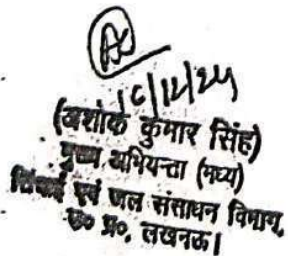 (अशोक कुमार सिंह)
मुख्य अभियन्ता (मध्य)
सिंचाई एवं जल संसाधन विभाग,
उ० प्र०, लखनऊ।